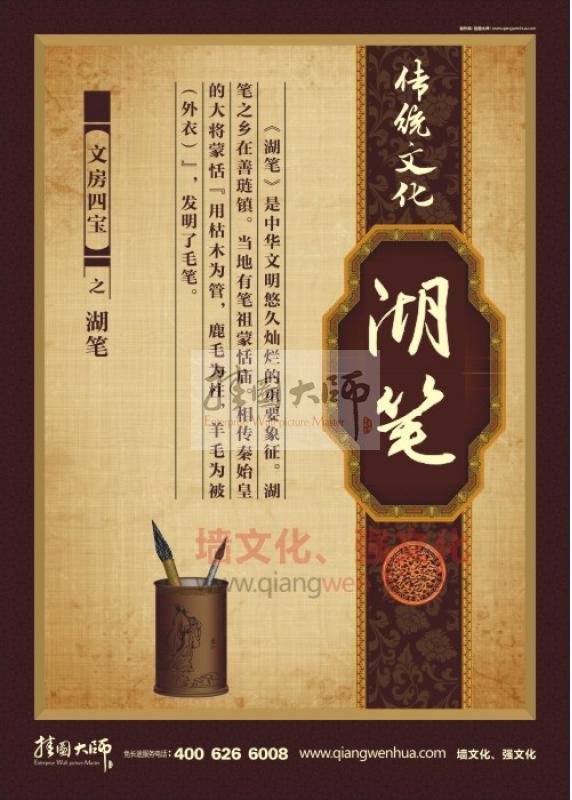 传统文化
湖笔
《湖笔》是中华文明悠久灿烂的重要象征。湖
笔之乡在善琏镇。当地有笔祖蒙恬庙。相传秦始皇
的大将蒙恬『用枯木为管，鹿毛为柱，羊毛为被
（外衣）』，发明了毛笔。
文房四宝之湖笔
挂图大师
Enterprise Wall picture Master
墙文化、强文化
www.qiangwen
挂图大师
Enterprise Wall picture Master
免长途服务电话：400 626 6008 www.qiangwenhua.com 墙文化、强文化